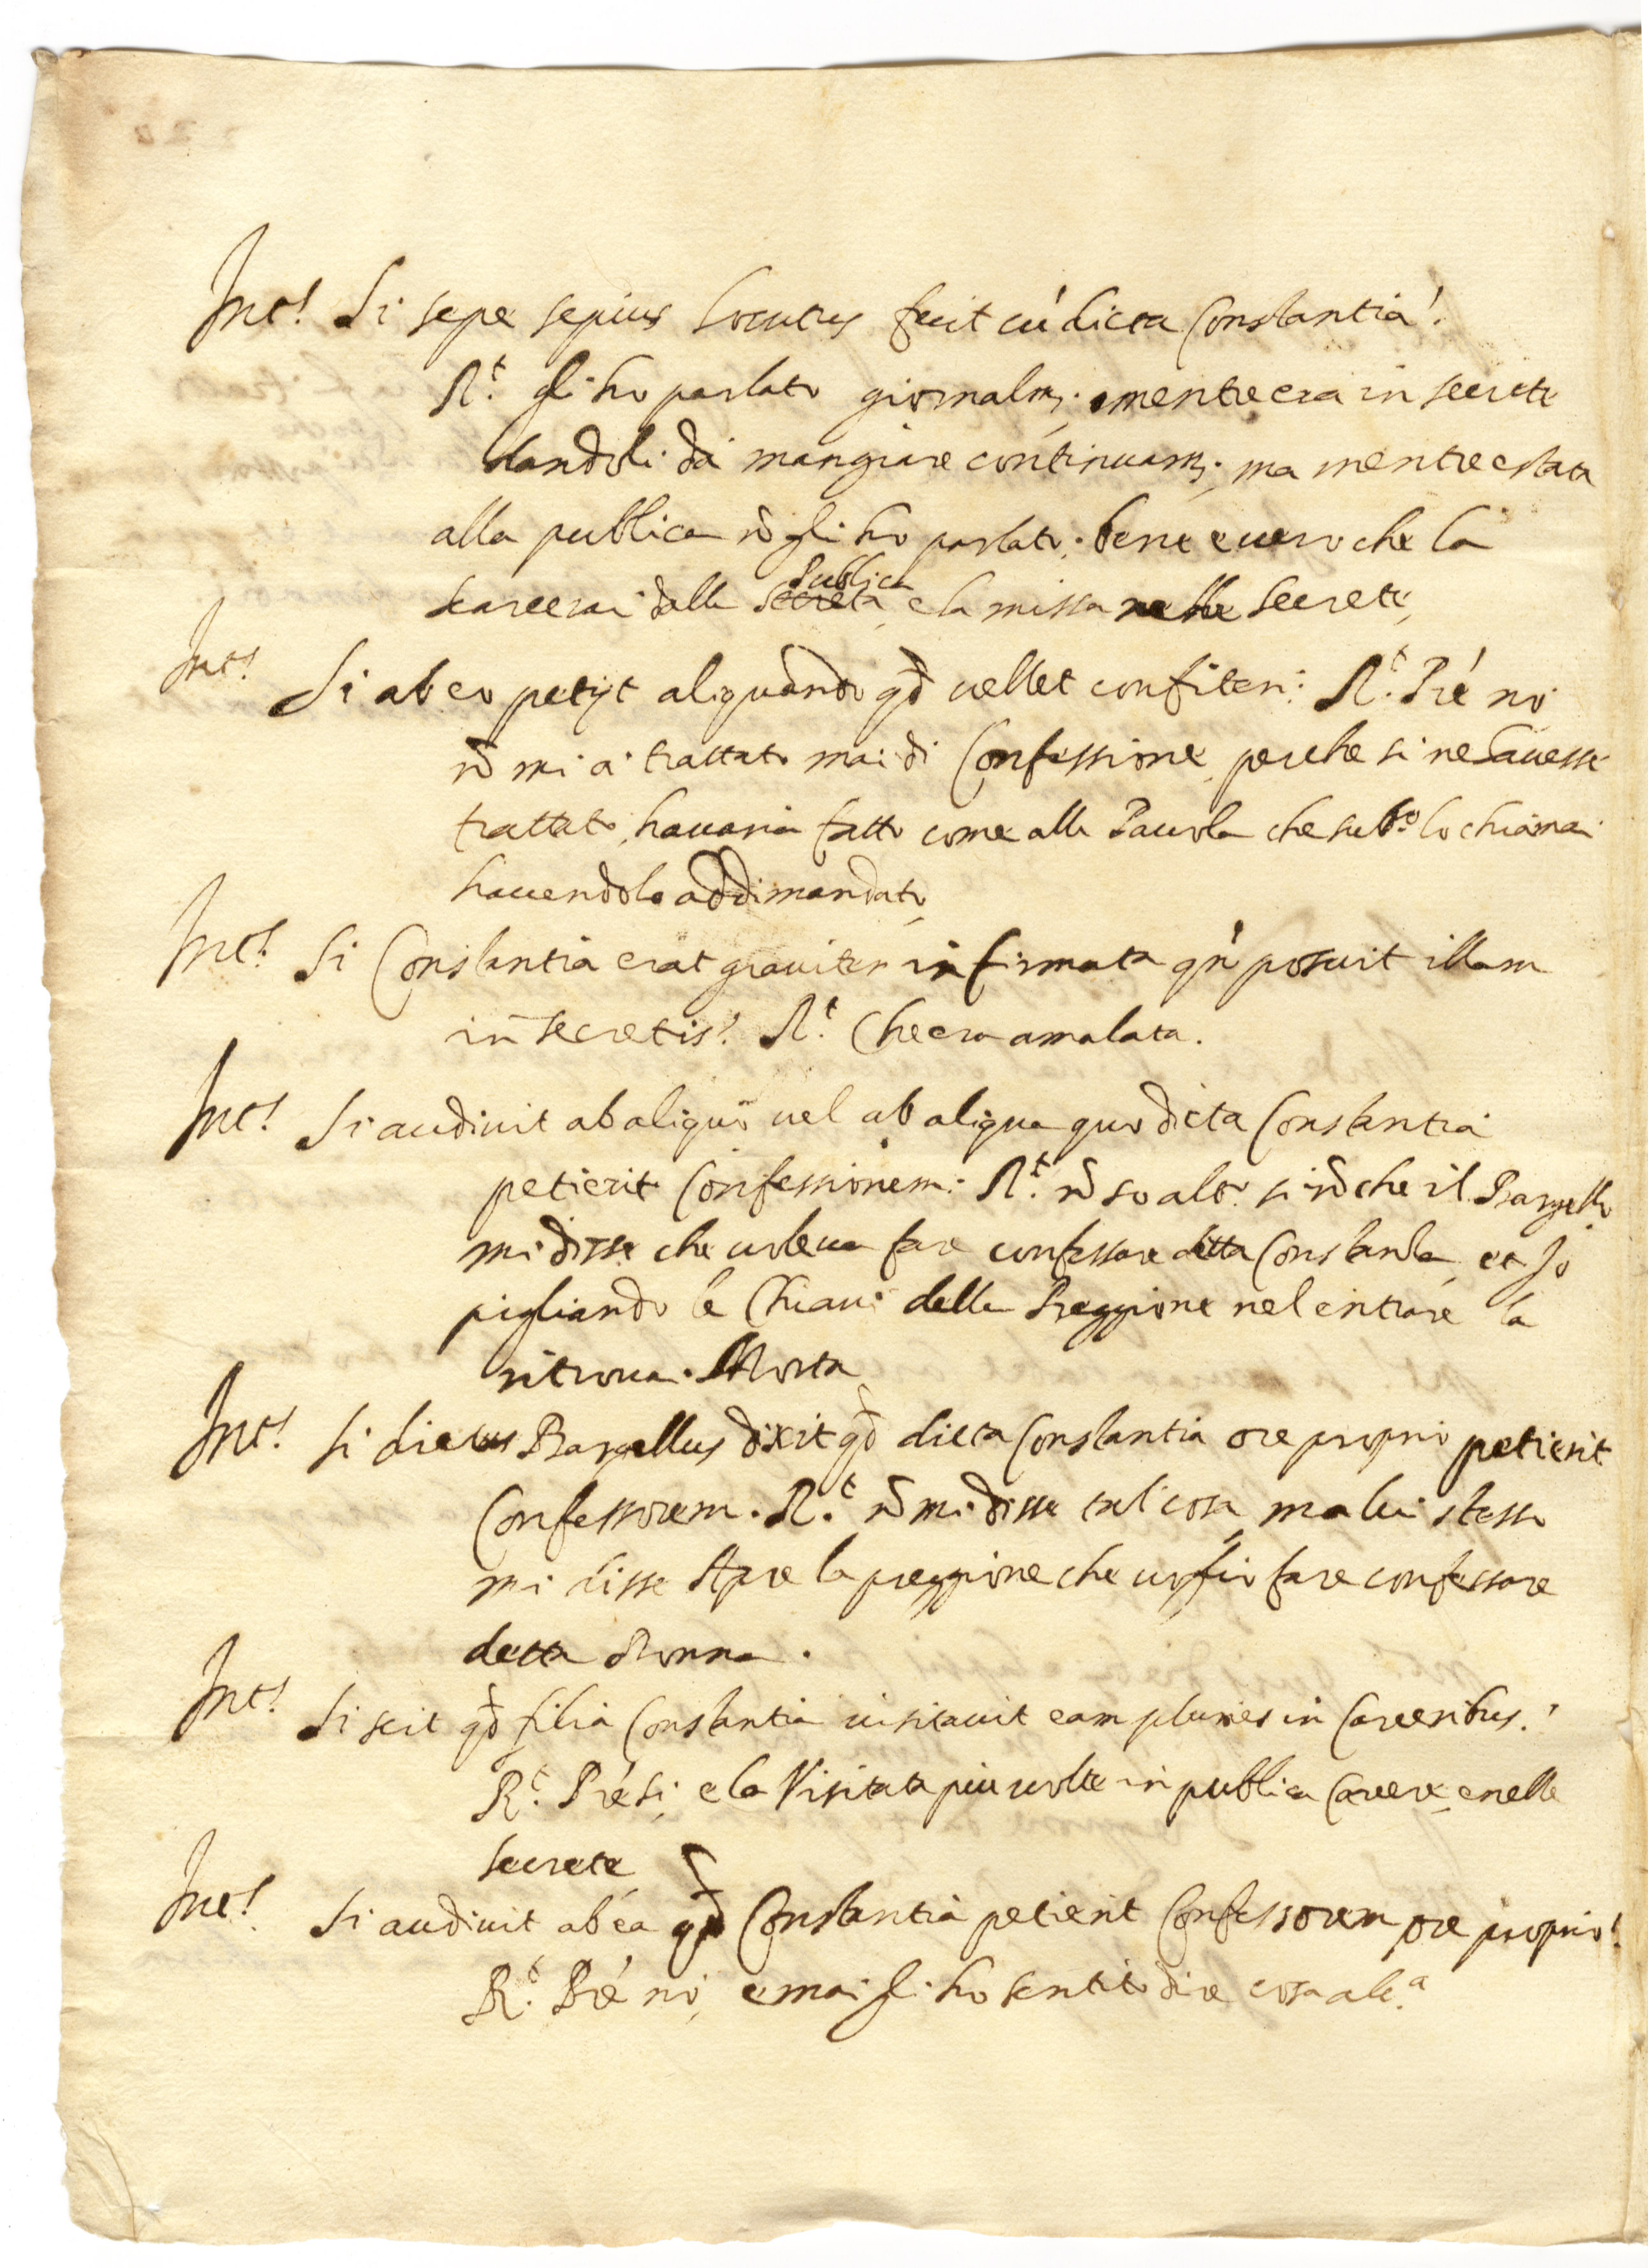 Int.s Si sepe sepius locutus fuit cú dicta Constantia?
R.t gli ho parlato giornalm.e mentre era in secrete
dandoli da mangiare continuam.e, ma mentre estata
alla publica nõ gli ho parlato. bene è uero che la
scarcerai dalla secreta Publica e la missa nelle secrete,
Int.s Si ab eo petijt aliquando qd̃ uellet confiteri: R.t Pré nò
nõ mi à trattato mai di Confessione, perche si ne hauesse
trattato, haueria fatto come alla Pauola che sub.o lo chiamai
hauendolo addimandato,
Int.s Si Constantia erat grauiter infirmata qñ posuit illam
in secretis? R.t Che era amalata.
Int.s Si audiuit ab aliquo uel ab aliqua quo dicta Constantia
petierit Confessionem: R.t nõ so altr. si nõ che il Bargello
mi disse che uoleua fare confessare detta Constanza, et Io
pigliando le Chiaui della Preggione nel entrare la
ritrouai Morta,
Int.s Si dictus Bargellus dixit qd̃ dicta Constantia ore proprio petierit
Confessorem. R.t nõ mi disse tal cosa, ma lui stesso
mi disse Apre la preggione che uoglio fare confessare
detta Donna.
Int.s Si scit qd̃ filia Constantia uisitauit eam pluries in Carceribus?
R.t Pré Si, e la Visitata piu uolte in publica Carcere, e nelle
secrete
Int.s Si audiuit ab ea qd̃ Constantia petierit Confessorem ore proprio?
R.t Pré nò, e mai gli ho sentito dire cosa alc.a